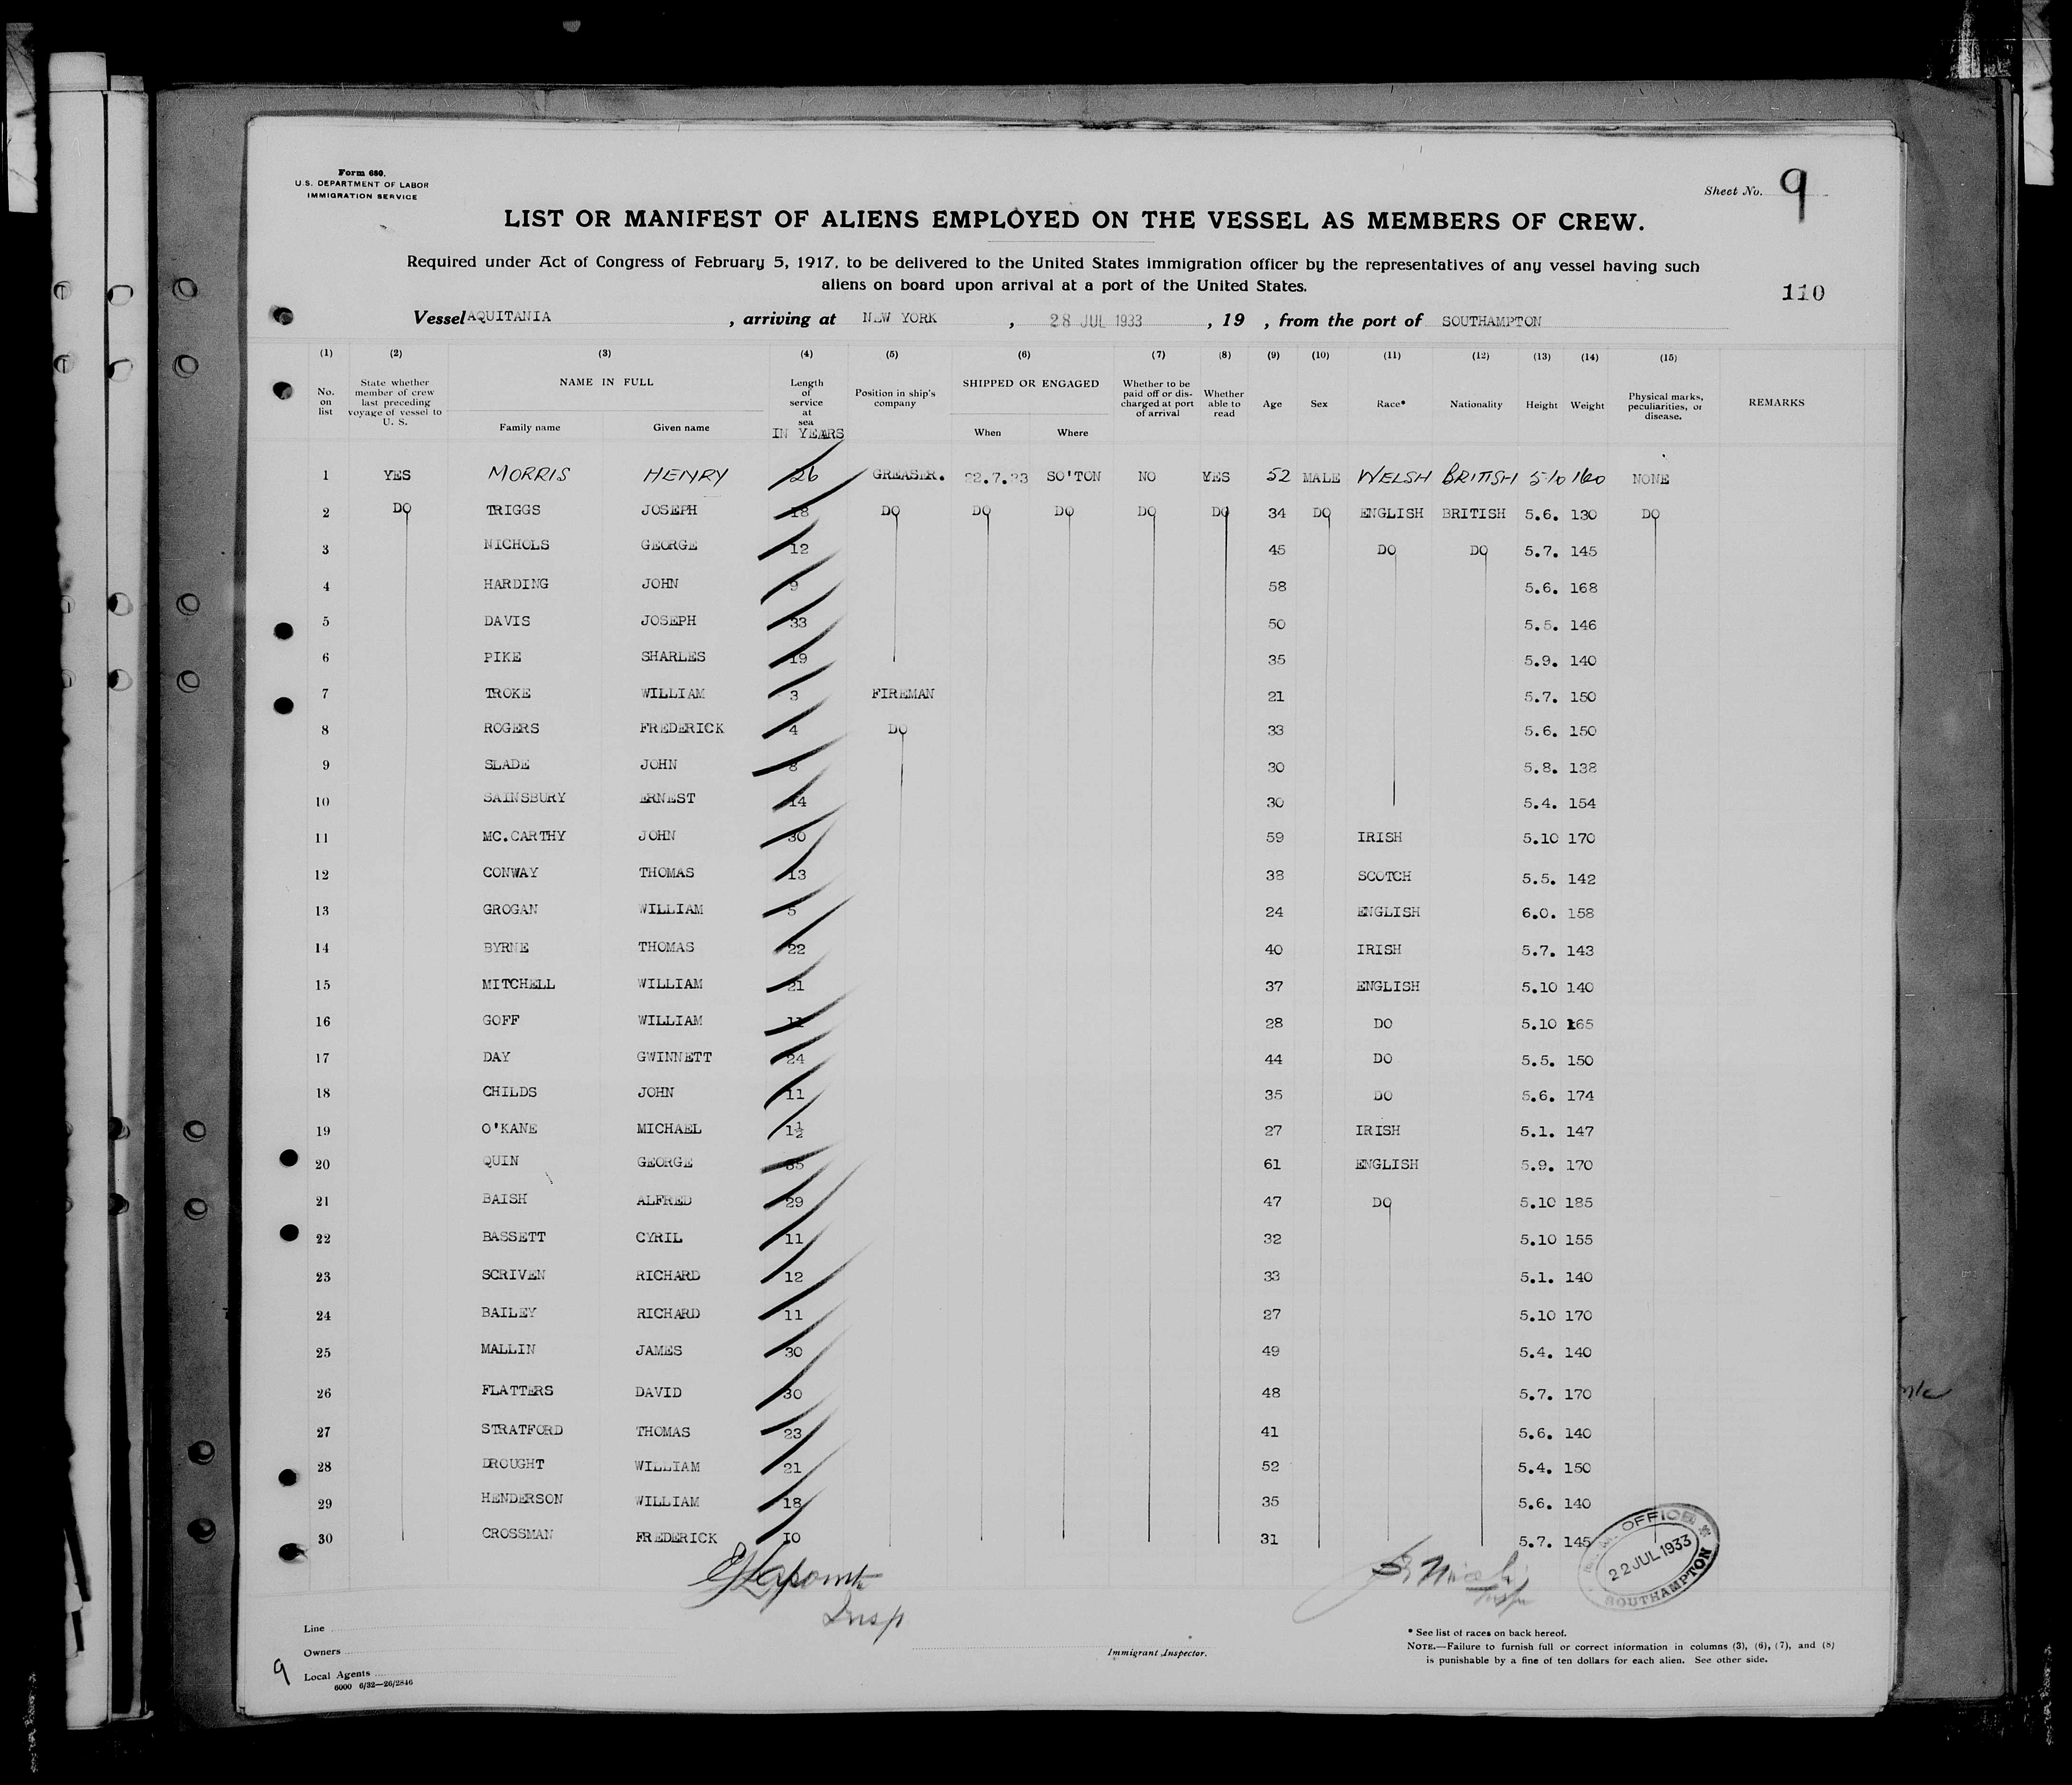 Form 680.
U.S. DEPARTMENT OF LABOR
IMMIGRATION SERVICE
Sheet No. 9
LIST OR MANIFEST OF ALIENS EMPLOYED ON THE VESSEL AS MEMBERS OF CREW.
Required under Act of Congress of February 5, 1917, to be delivered to the United States immigration officer by the representatives of any vessel having such
aliens on board upon arrival at a port of the United States.
110
Vessel AQUITANIA, arriving at NEW YORK, 28 JUL 1933, 19 , from the port of SOUTHAMPTON
(1) (2) (3) (4) (5) (6) (7) (8) (9) (10) (11) (12) (13) (14) (15)
No. on list State whether member of crew last preceding voyage of vessel to U. S. NAME IN FULL Family name Given name Length of service at sea IN YEARS Position in ship's company SHIPPED OR ENGAGED When Where Whether to be paid off or discharged at port of arrival Whether able to read Age Sex Race* Nationality Height Weight Physical marks, peculiarities, or disease. REMARKS
1 YES MORRIS HENRY 26 GREASER. 22.7.33 SO'TON NO YES 52 MALE WELSH BRITISH 5 10 160 NONE
2 DO TRIGGS JOSEPH 18 DO DO DO DO DO 34 DO ENGLISH BRITISH 5.6. 130 DO
3 NICHOLS GEORGE 12 45 DO DO 5.7. 145
4 HARDING JOHN 9 58 5.6. 168
5 DAVIS JOSEPH 33 50 5.5. 146
6 PIKE SHARLES 19 35 5.9. 140
7 TROKE WILLIAM 3 FIREMAN 21 5.7. 150
8 ROGERS FREDERICK 4 DO 33 5.6. 150
9 SLADE JOHN 8 30 5.8. 138
10 SAINSBURY ERNEST 14 30 5.4. 154
11 MC.CARTHY JOHN 30 59 IRISH 5.10 170
12 CONWAY THOMAS 13 38 SCOTCH 5.5. 142
13 GROGAN WILLIAM 5 24 ENGLISH 6.0. 158
14 BYRNE THOMAS 22 40 IRISH 5.7. 143
15 MITCHELL WILLIAM 21 37 ENGLISH 5.10 140
16 GOFF WILLIAM 11 28 DO 5.10 165
17 DAY GWINNETT 24 44 DO 5.5. 150
18 CHILDS JOHN 11 35 DO 5.6. 174
19 O'KANE MICHAEL 1½ 27 IRISH 5.1. 147
20 QUIN GEORGE 35 61 ENGLISH 5.9. 170
21 BAISH ALFRED 29 47 DO 5.10 185
22 BASSETT CYRIL 11 32 5.10 155
23 SCRIVEN RICHARD 12 33 5.1. 140
24 BAILEY RICHARD 11 27 5.10 170
25 MALLIN JAMES 30 49 5.4. 140
26 FLATTERS DAVID 30 48 5.7. 170
27 STRATFORD THOMAS 23 41 5.6. 140
28 DROUGHT WILLIAM 21 52 5.4. 150
29 HENDERSON WILLIAM 18 35 5.6. 140
30 CROSSMAN FREDERICK 10 31 5.7. 145
Insp
Insp
OFFICE
22 JUL 1933
SOUTHAMPTON
Line
Owners
Local Agents
6000 6/32—26/2846
9
Immigrant Inspector.
* See list of races on back hereof.
NOTE.—Failure to furnish full or correct information in columns (3), (6), (7), and (8)
is punishable by a fine of ten dollars for each alien. See other side.